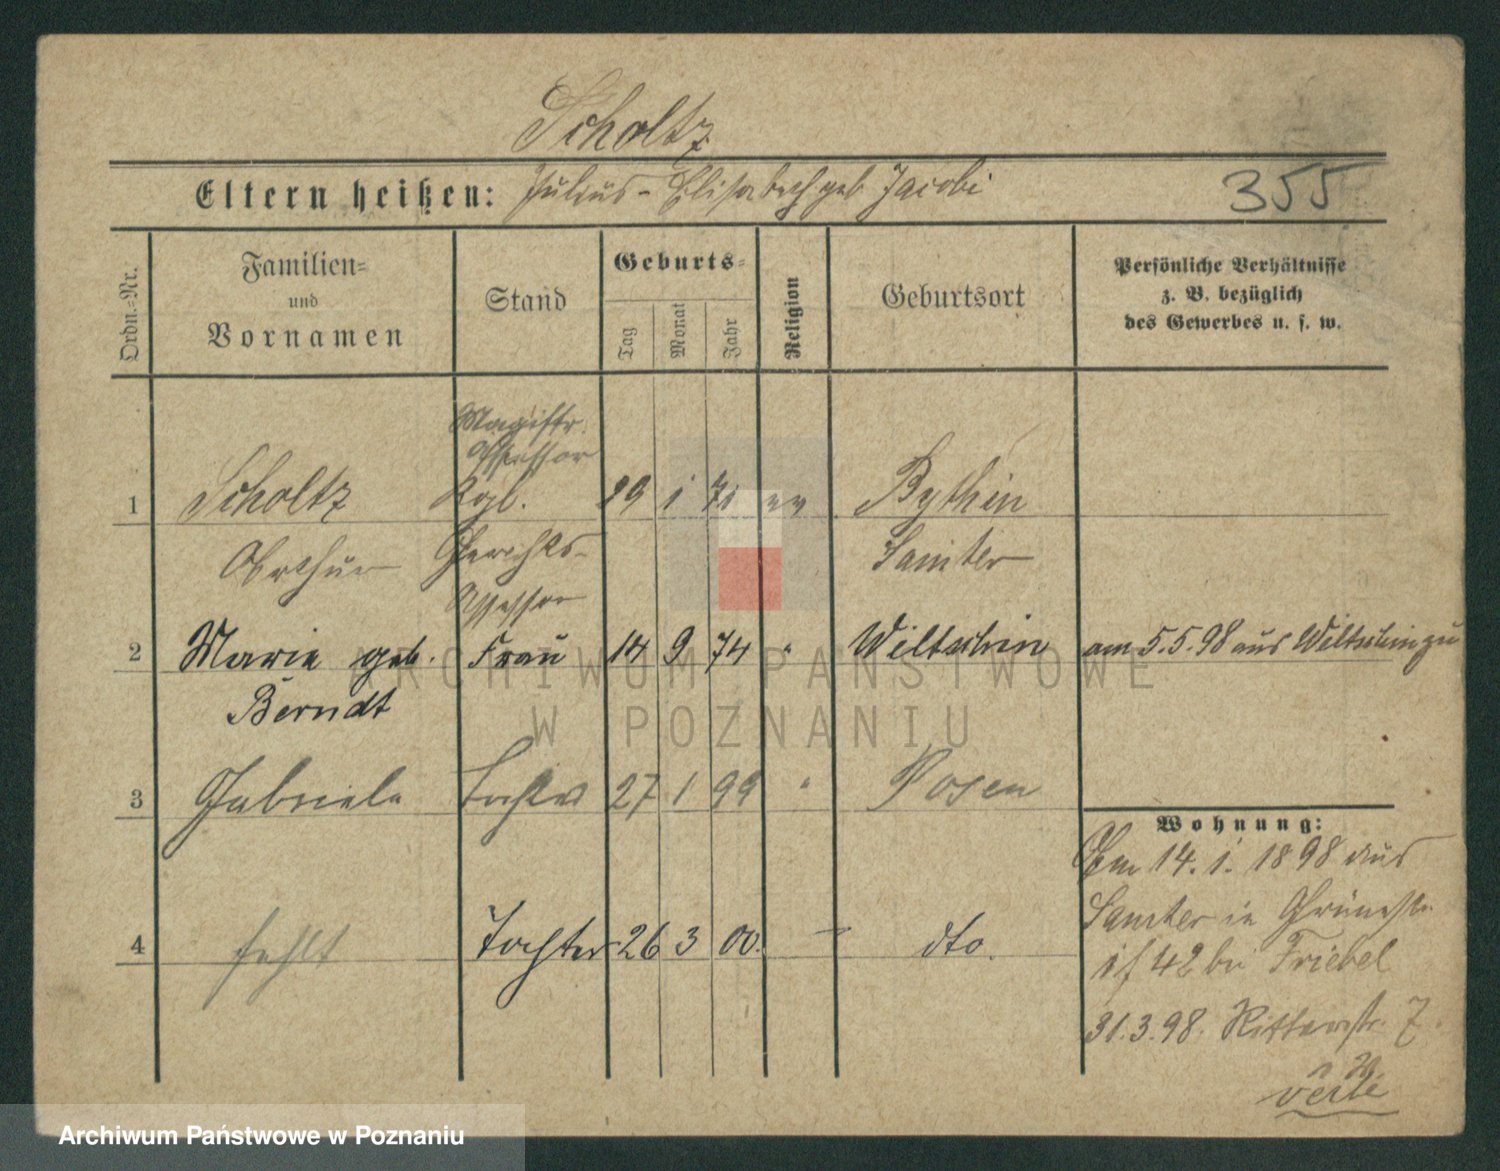 Scholtz
Eltern heißen: Julius - Elisabeth geb Jacobi
355
Ordn.-Nr.
Familien-
und
Vornamen
Stand
Geburts-
Tag
Monat
Jahr
Religion
Geburtsort
Persönliche Verhältnisse
z. B. bezüglich
des Gewerbes u. s. w.
Magistr.
Assessor
1 Scholtz Kgl. 29 1 71 ev Bythin
Arthur Gerichts- Samter
Assessor
2 Marie geb. Frau 14 9 74 " Wiltschin am 5.5.98 aus Wiltschin zu
Berndt
3 Gabriele Tochter 27 1 99 " Posen
Wohnung:
Am 14. 1. 1898 aus
Samter in Grünestr.
42 bei Friebel
4 fehlt Tochter 26 3 00. " dto.
31.3.98. Ritterstr. 7
verte
ARCHIWUM PAŃSTWOWE
W POZNANIU
Archiwum Państwowe w Poznaniu